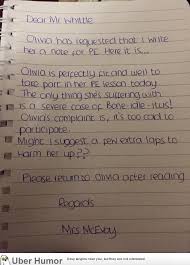 Dear Mr Whittle
Olivia has requested that I write
her a note, for PE. Here it is...
Olivia is perfectly fit and well to
take part in her PE lesson today.
The only thing she's suffering with
is a severe case of Bone-idle-itus!
Olivia's complaint is, it's too cold to
participate.
Might I suggest a few extra laps to
warm her up??
Please return to Olivia after reading
Regards
Mrs McEvoy
Uber Humor